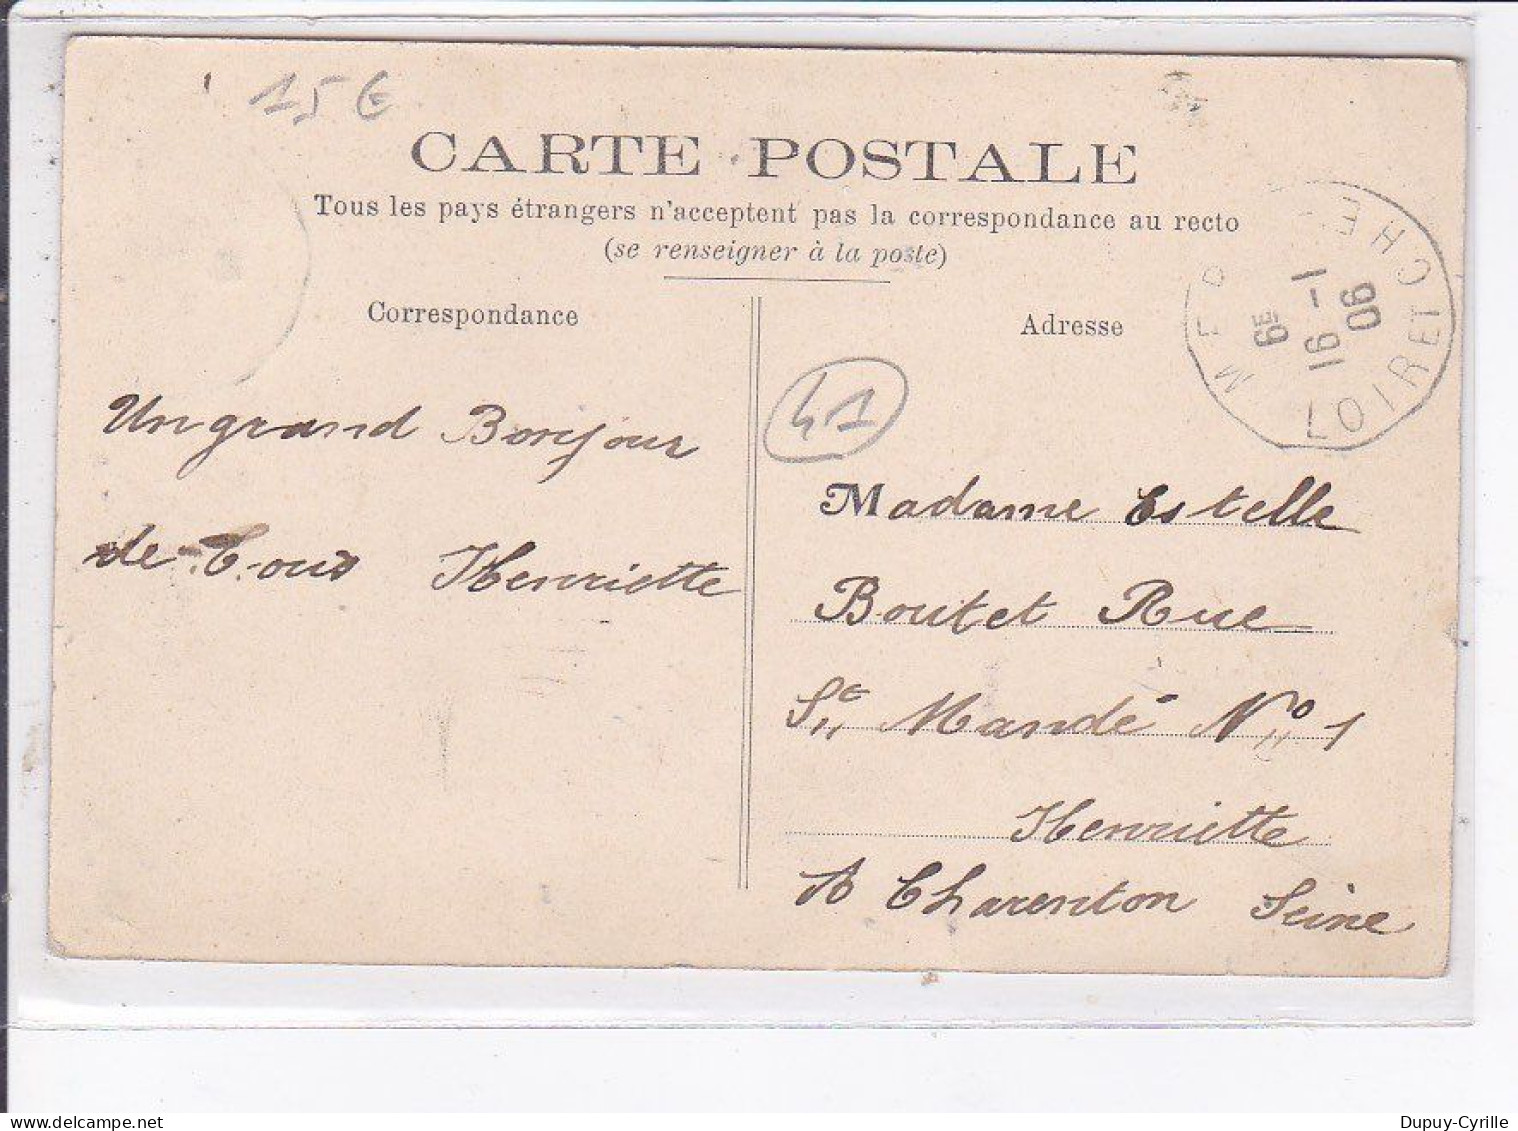 15 €
CARTE POSTALE
Tous les pays étrangers n'acceptent pas la correspondance au recto
(se renseigner à la poste)
Correspondance
Adresse
LOIR ET CHER
6E
16 - 1
06
41
Un grand Bonjour
de Tous Henriette
Madame Estelle
Boutet Rue
St Mandé No 1
Henriette
A Charenton Seine
Dupuy-Cyrille